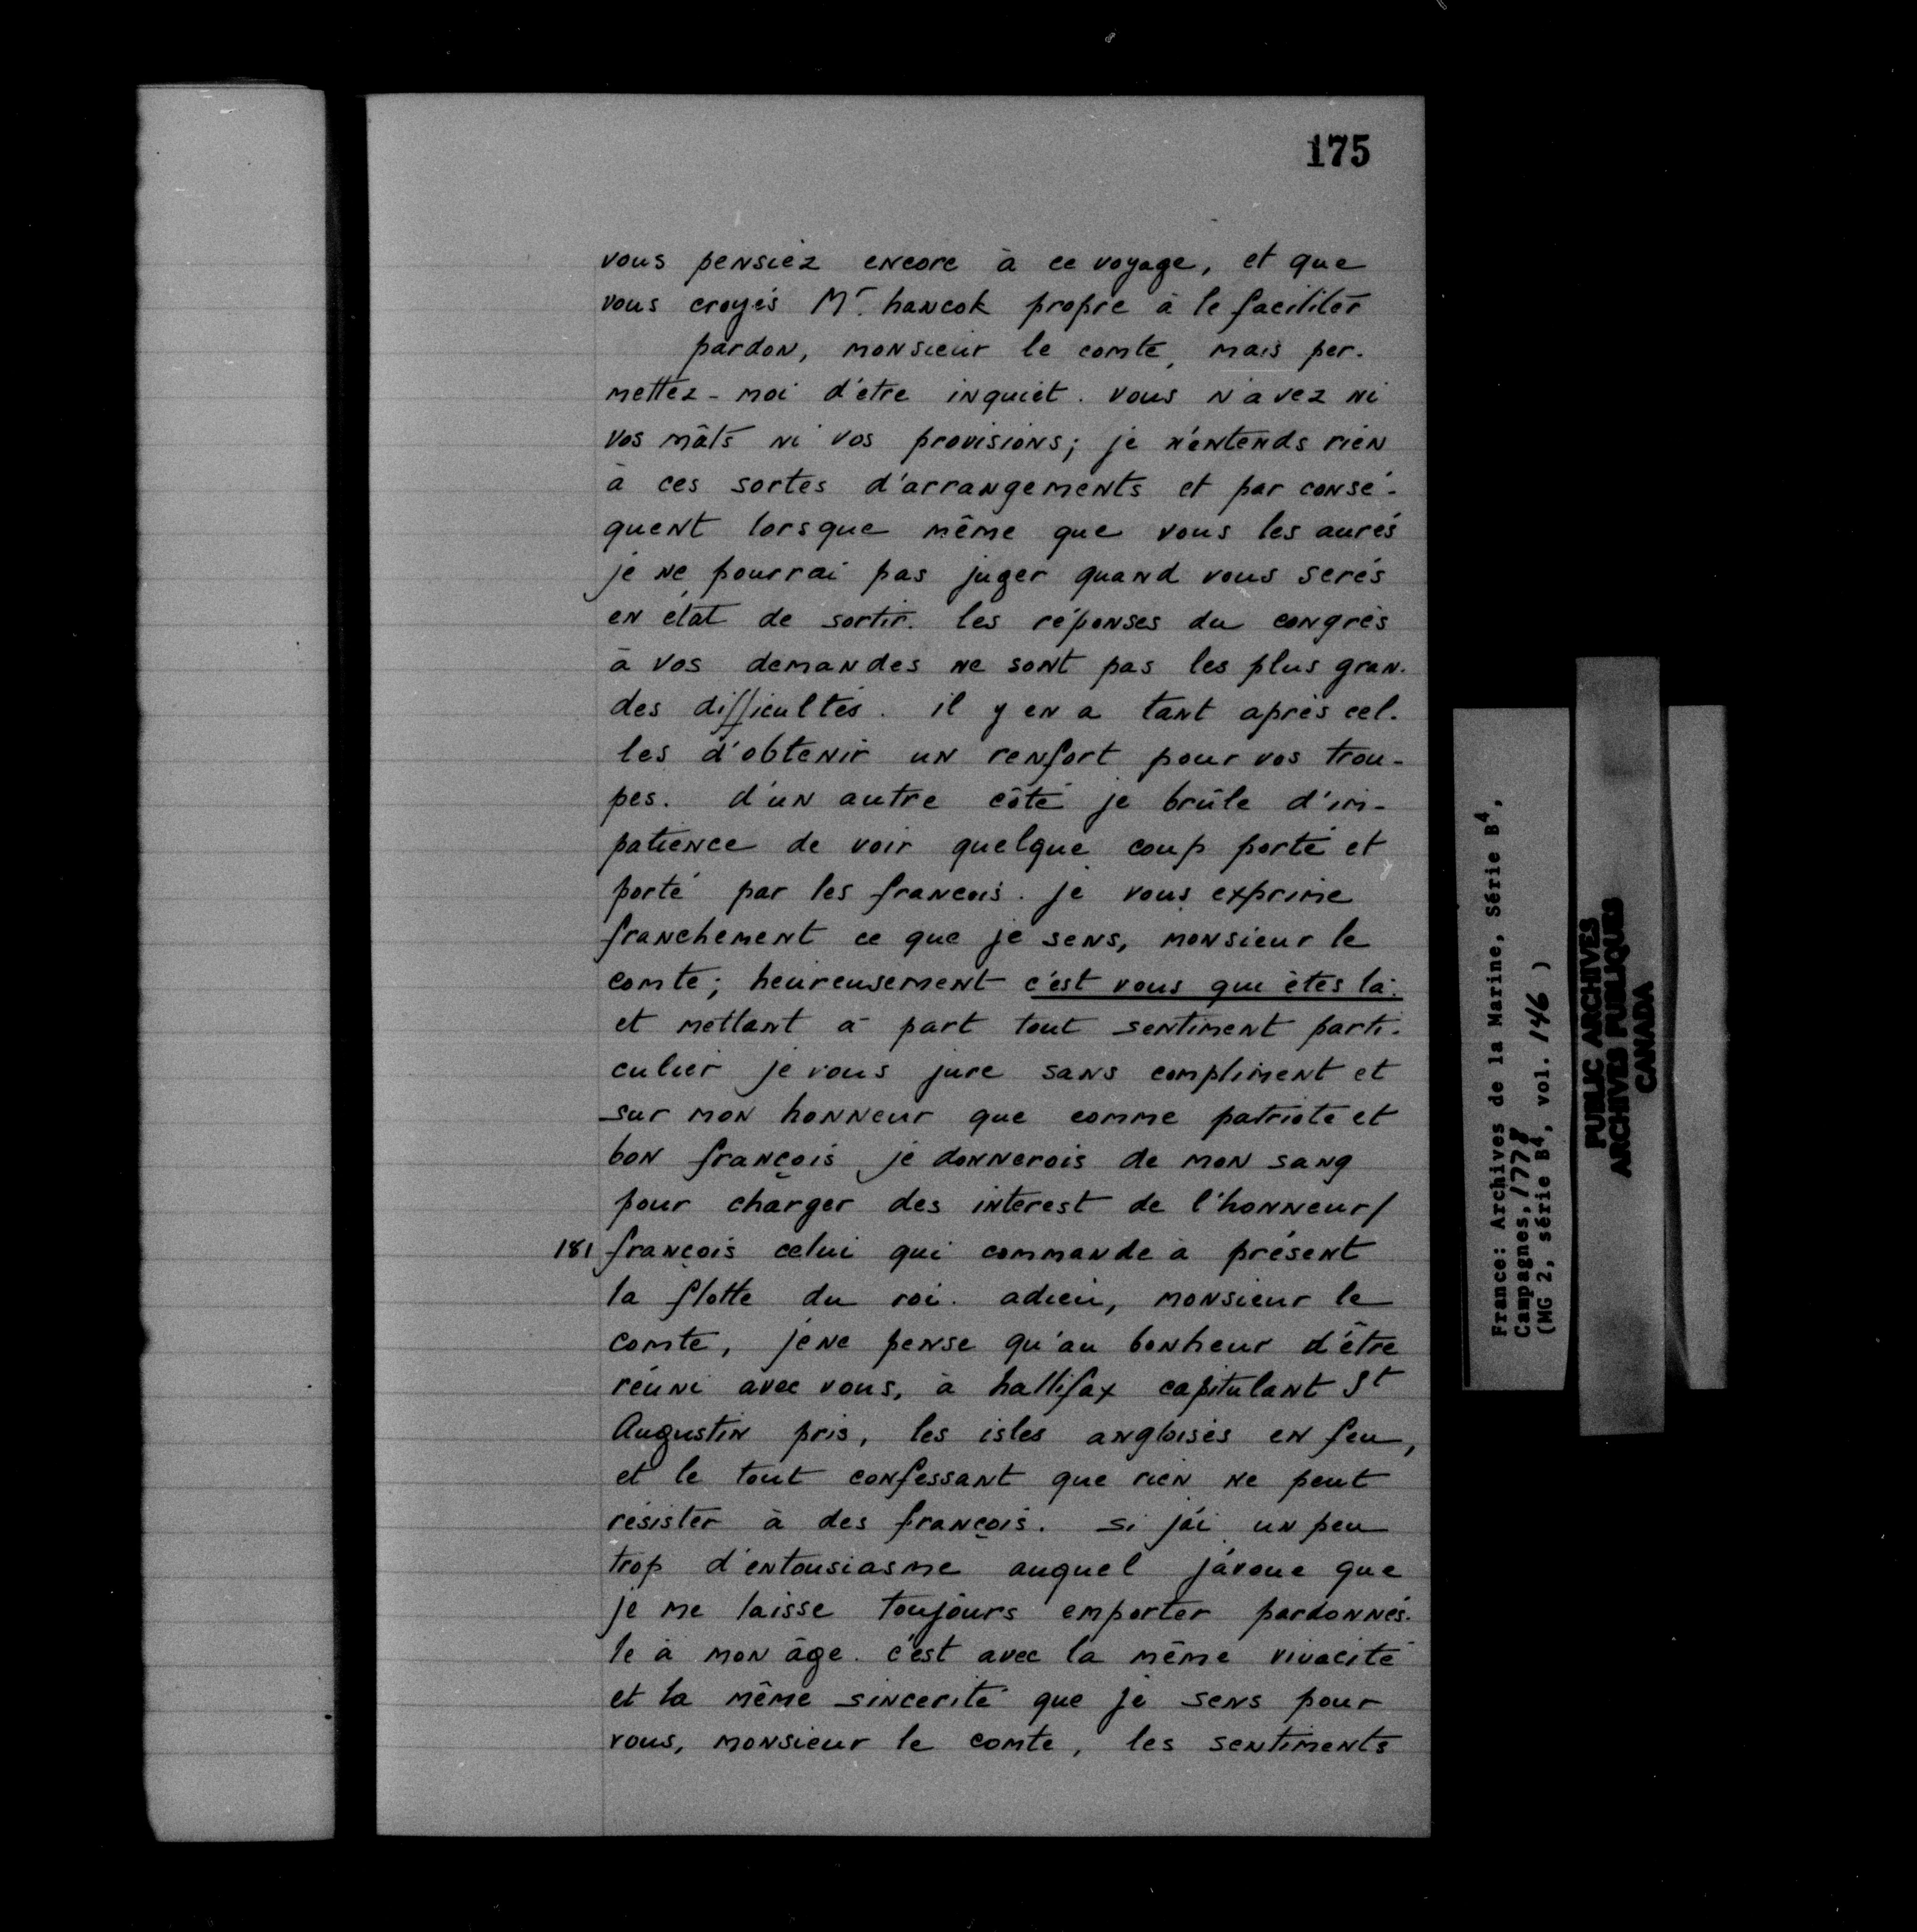 175
vous pensiez encore à ce voyage, et que
vous croyés Mr. hancok propre à le faciliter
pardon, monsieur le comte, mais per-
mettez-moi d'être inquiet. vous n'avez ni
vos mâts ni vos provisions; je n'entends rien
à ces sortes d'arrangements et par consé-
quent lorsque même que vous les aurés
je ne pourrai pas juger quand vous serés
en état de sortir. les réponses du congrès
à vos demandes ne sont pas les plus gran-
des difficultés. il y en a tant après cel-
les d'obtenir un renfort pour vos trou-
pes. d'un autre côté je brûle d'im-
patience de voir quelque coup porté et
porté par les francois. je vous exprime
franchement ce que je sens, monsieur le
comte; heureusement c'est vous qui êtes là.
et mettant à part tout sentiment parti-
culier je vous jure sans compliment et
sur mon honneur que comme patriote et
bon françois je donnerois de mon sang
pour charger des interest de l'honneur/
181 françois celui qui commande à présent
la flotte du roi. adieu, monsieur le
comte, je ne pense qu'au bonheur d'être
réuni avec vous, à hallifax capitulant St
Augustin pris, les isles angloises en feu,
et le tout confessant que rien ne peut
résister à des françois. si j'ai un peu
trop d'entousiasme auquel j'avoue que
je me laisse toujours emporter pardonnés-
le à mon âge. c'est avec la même vivacité
et la même sincerité que je sens pour
vous, monsieur le comte, les sentiments
France: Archives de la Marine, Série B4,
Campagnes, 1778
(MG 2, série B4, vol. 146 )
PUBLIC ARCHIVES
ARCHIVES PUBLIQUES
CANADA